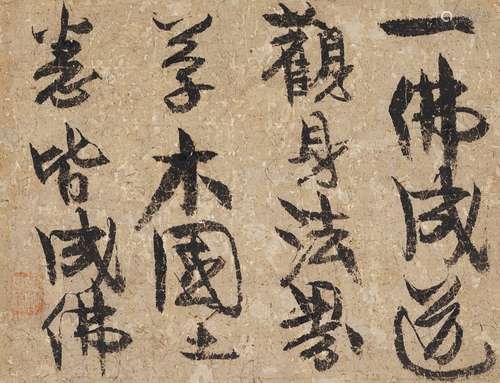 一佛成道
觀見法界
草木國土
悉皆成佛